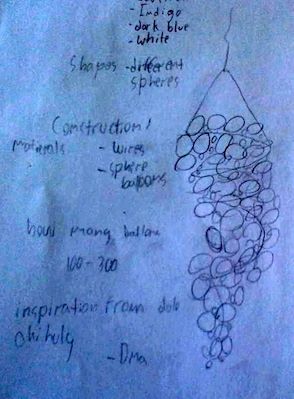 - Indigo
- dark blue
- white
Shapes - different
spheres
Construction!
Materials - wires
- sphere
balloons
how many ballons
100-300
inspiration from dale
chihuly
- Dma